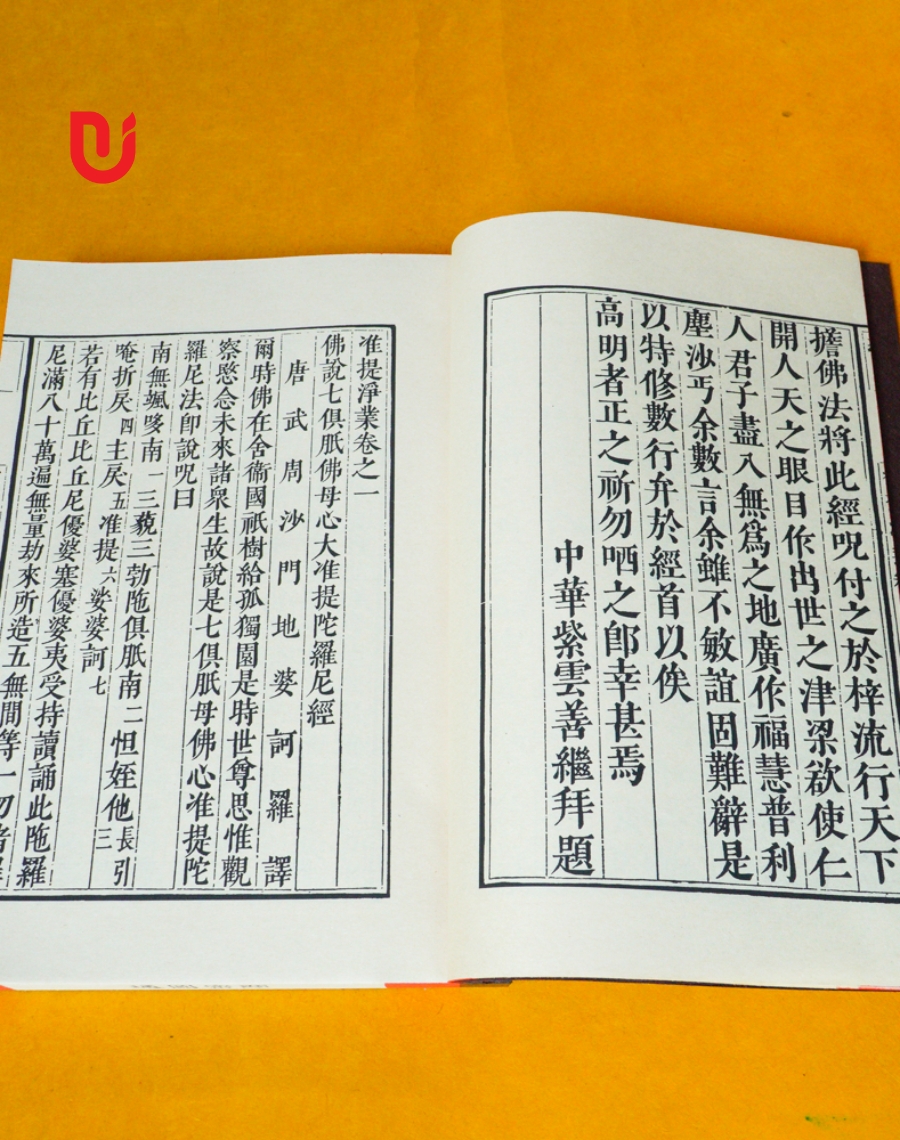 擔佛法將此經呪付之於梓流行天下
開人天之眼目作出世之津梁欲使仁
人君子盡入無爲之地廣作福慧普利
塵沙丐余數言余雖不敏誼固難辭是
以特修數行弁於經首以俟
高明者正之祈勿哂之卽幸甚焉
中華紫雲善繼拜題
准提淨業卷之一
佛說七俱胝佛母心大准提陀羅尼經
唐武周沙門地婆訶羅譯
爾時佛在舍衞國祇樹給孤獨園是時世尊思惟觀
察愍念未來諸衆生故說是七俱胝母佛心准提陀
羅尼法卽說呪曰
南無颯哆南一三藐三勃陁俱胝南二怛姪他長引三
唵折戾四主戾五准提六娑婆訶七
若有比丘比丘尼優婆塞優婆夷受持讀誦此陁羅
尼滿八十萬遍無量劫來所造五無間等一切